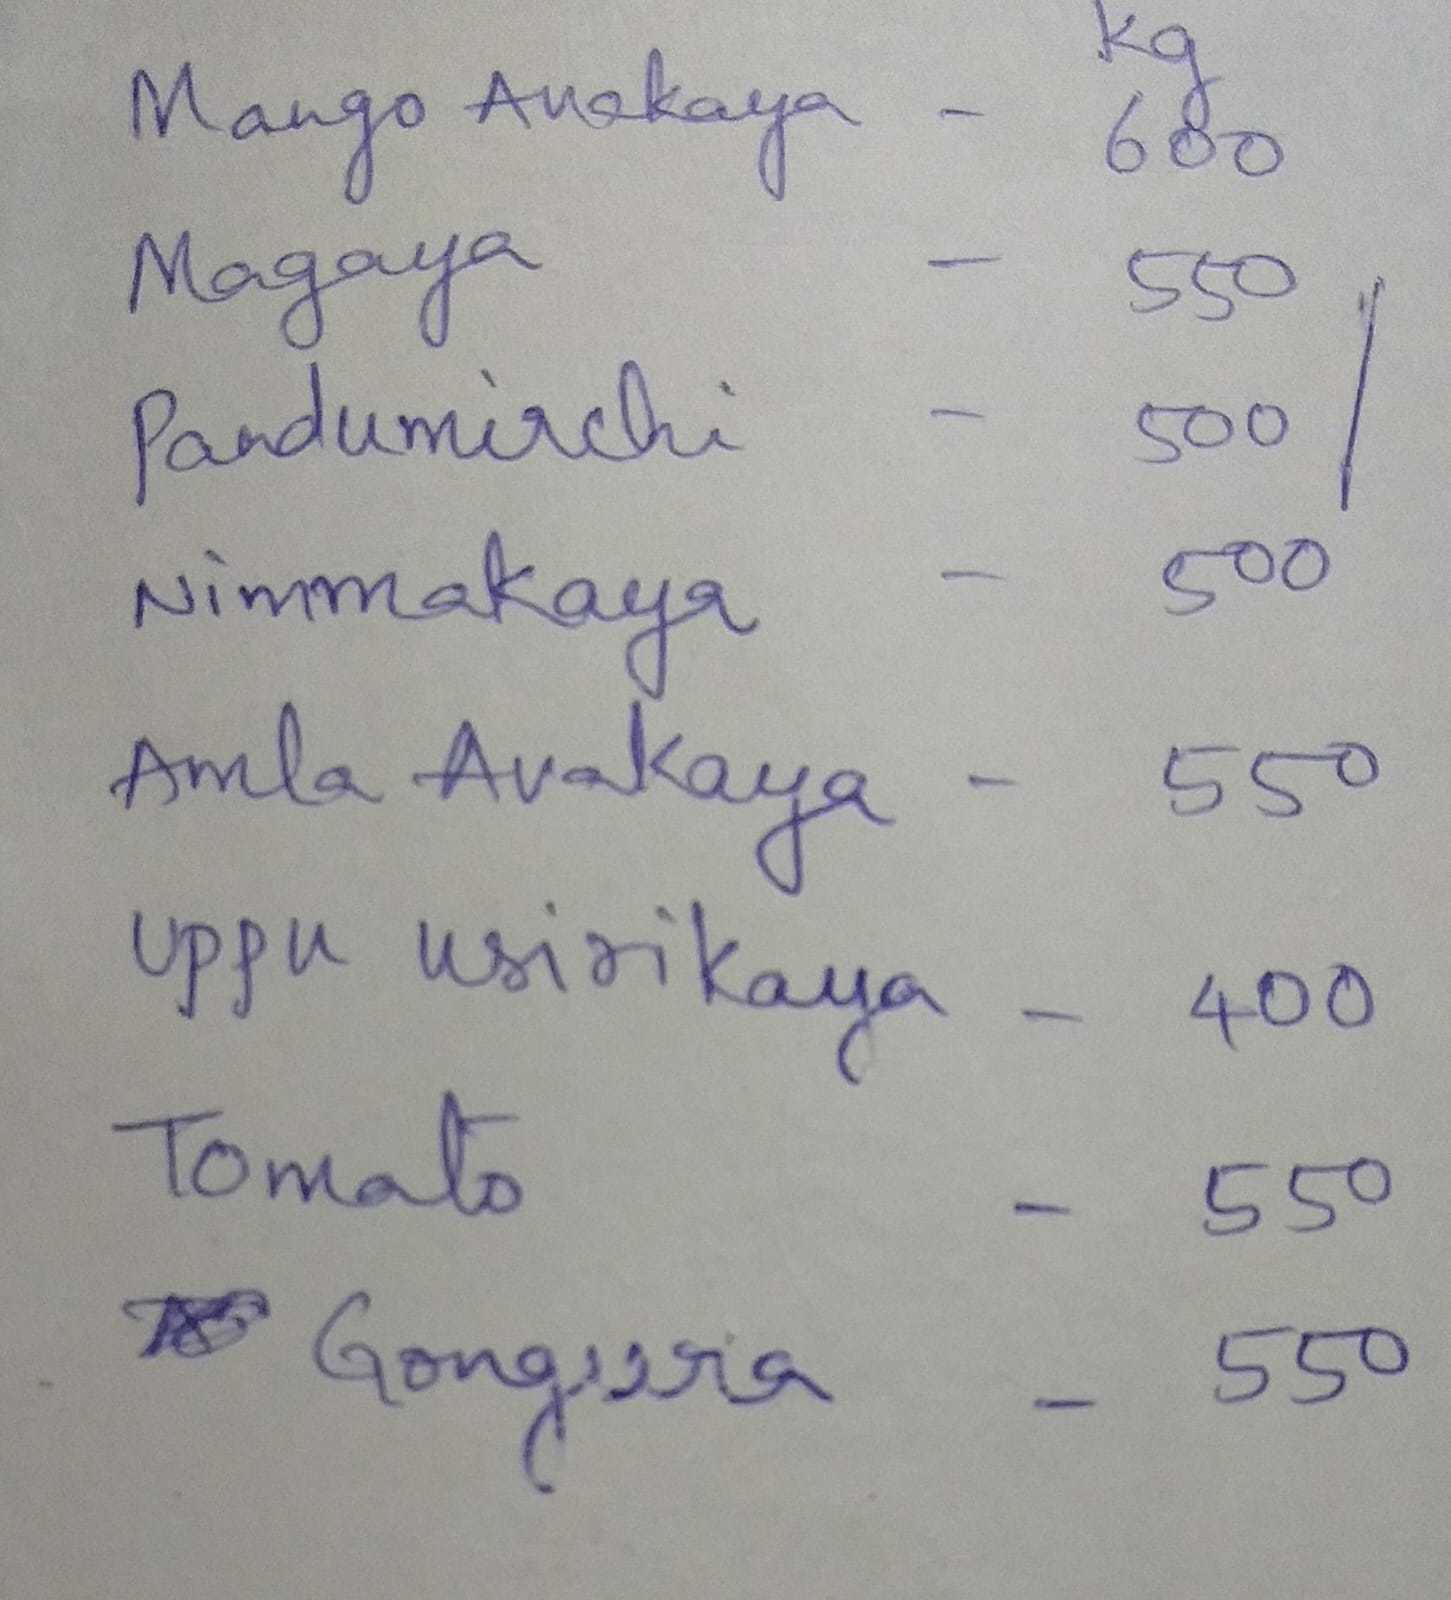 kg
Mango Avakaya - 600
Magaya - 550
Pandumirchi - 500
Nimmakaya - 500
Amla Avakaya - 550
Uppu usirikaya - 400
Tomato - 550
Gongura - 550